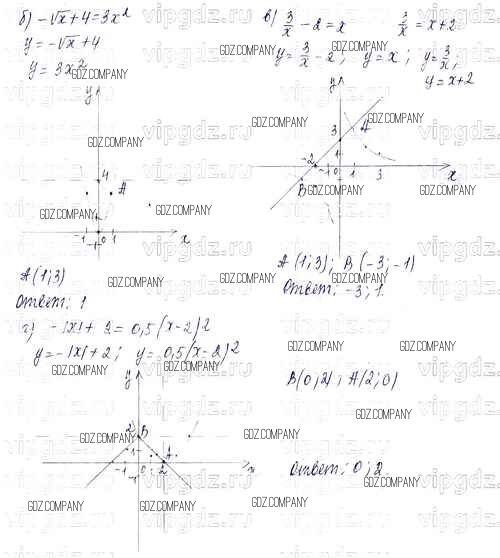 б) -√x + 4 = 3x²
y = -√x + 4
y = 3x²
y
4
A
-1 0 1
-1
x
A (1; 3)
Ответ: 1
в) 3/x - 2 = x
3/x = x + 2
y = 3/x - 2; y = x; y = 3/x;
y = x + 2
y
3
A
-2
1
-1 0 1 3
x
B
A (1; 3); B (-3; -1)
Ответ: -3; 1.
г) -|x| + 2 = 0,5(x-2)2
y = -|x| + 2; y = 0,5(x-2)2
y
2 B
1
A
-1 0 2
-1
x
B(0; 2); A(2; 0)
Ответ: 0; 2.
GDZ.COMPANY
vipgdz.ru